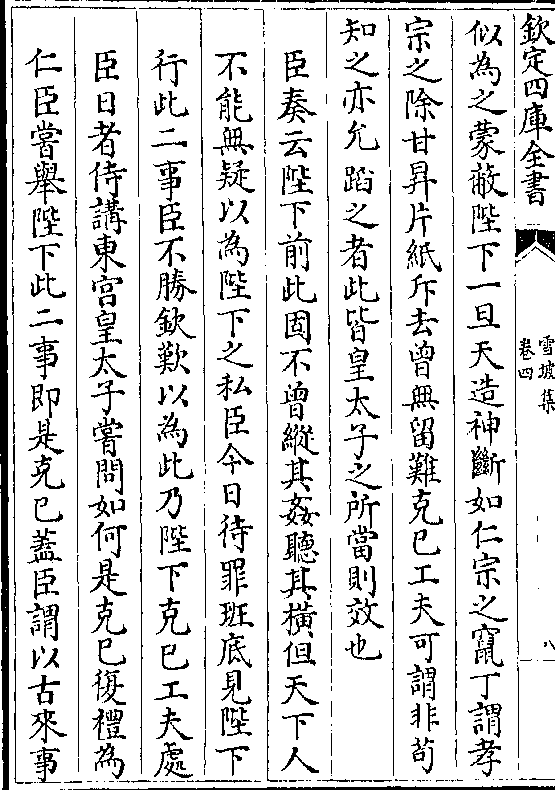 欽定四庫全書
雪坡集
卷四
八
似為之蒙蔽陛下一旦天造神斷如仁宗之竄丁謂孝
宗之除甘昇片紙斥去曾無留難克已工夫可謂非苟
知之亦允蹈之者此皆皇太子之所當則效也
臣奏云陛下前此固不曾縱其姦聽其横但天下人
不能無疑以為陛下之私臣今日待罪班底見陛下
行此二事臣不勝欽歎以為此乃陛下克已工夫處
臣日者侍講東宫皇太子嘗問如何是克已復禮為
仁臣嘗舉陛下此二事即是克已蓋臣謂以古來事